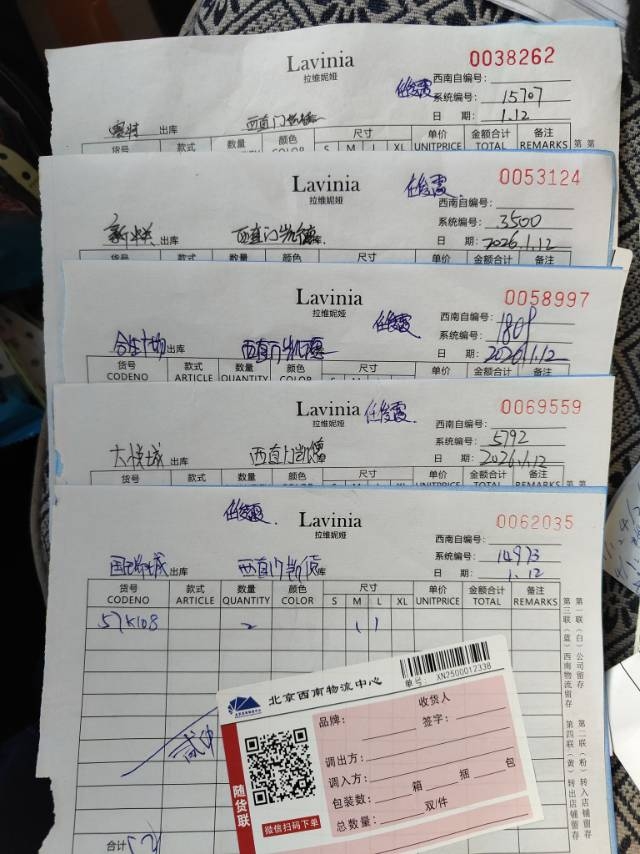 Lavinia
拉维妮娅
0038262
任俊霞
西南自编号:
系统编号: 15707
日 期: 1.12
出库 西直门凯德
货号 款式 数量 颜色 尺寸 单价 金额合计 备注
S M L XL UNITPRICE TOTAL REMARKS
Lavinia
拉维妮娅
0053124
任俊霞
西南自编号:
系统编号: 3500
日 期: 2026.1.12
出库 西直门凯德
货号 款式 数量 颜色 尺寸 单价 金额合计 备注
Lavinia
拉维妮娅
0058997
任俊霞
西南自编号:
系统编号: 1809
日 期: 2026.1.12
合生广场 出库 西直门凯德
货号 款式 数量 颜色 尺寸 单价 金额合计 备注
CODENO ARTICLE QUANTITY COLOR S M L XL UNITPRICE TOTAL REMARKS
Lavinia
拉维妮娅
任俊霞
0069559
西南自编号:
系统编号: 5792
日 期: 2026.1.12
大悦城 出库 西直门凯德
货号 款式 数量 颜色 尺寸 单价 金额合计 备注
任俊霞
Lavinia
拉维妮娅
0062035
西南自编号:
系统编号: 14973
日 期: 1.12
国瑞城 出库 西直门凯德 库
货号 款式 数量 颜色 尺寸 单价 金额合计 备注
CODENO ARTICLE QUANTITY COLOR S M L XL UNITPRICE TOTAL REMARKS
57K108 2 1 1
第一联(白)公司留存
第三联(蓝)西南物流留存
第二联(粉)转入店铺留存
第四联(黄)转出店铺留存
合计
北京西南物流中心
单号: XN2500012338
收货人
品牌: 签字:
调出方:
调入方:
包装数: 箱 捆 包
总数量: 双/件
随货联
微信扫码下单